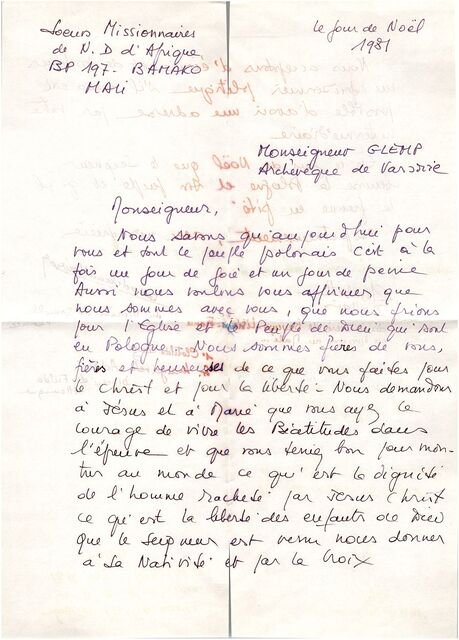 Soeurs Missionnaires
de N.D d'Afrique
BP 197 - BAMAKO
MALI
le jour de Noël
1981
Monseigneur GLEMP
Archevêque de Varsovie
Monseigneur,
Nous savons qu'aujourd'hui pour
vous et tout le peuple polonais c'est à la
fois un jour de joie et un jour de peine
Aussi nous voulons vous affirmer que
nous sommes avec vous, que nous prions
pour l'Eglise et le Peuple de Dieu qui sont
en Pologne. Nous sommes fières de vous,
fières et heureuses de ce que vous faites pour
le Christ et pour la liberté - Nous demandons
à Jésus et à Marie que vous ayez le
courage de vivre les Béatitudes dans
l'épreuve et que vous teniez bon pour mon-
trer au monde ce qu'est la dignité
de l'homme racheté par Jésus Christ
ce qu'est la liberté des enfants de Dieu
que le Seigneur est venu nous donner
à sa Nativité et par la Croix